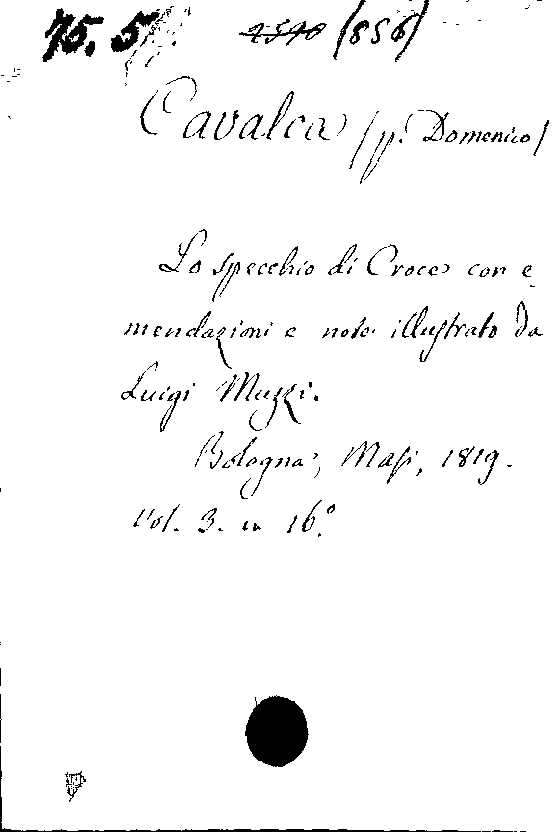 75. 5
2590 (856)
Cavalca (p. Domenico)
Lo specchio di Croce con e
mendazioni e note illustrato da
Luigi Muzzi.
Bologna, Masi, 1819.
Vol. 3. in 16.°